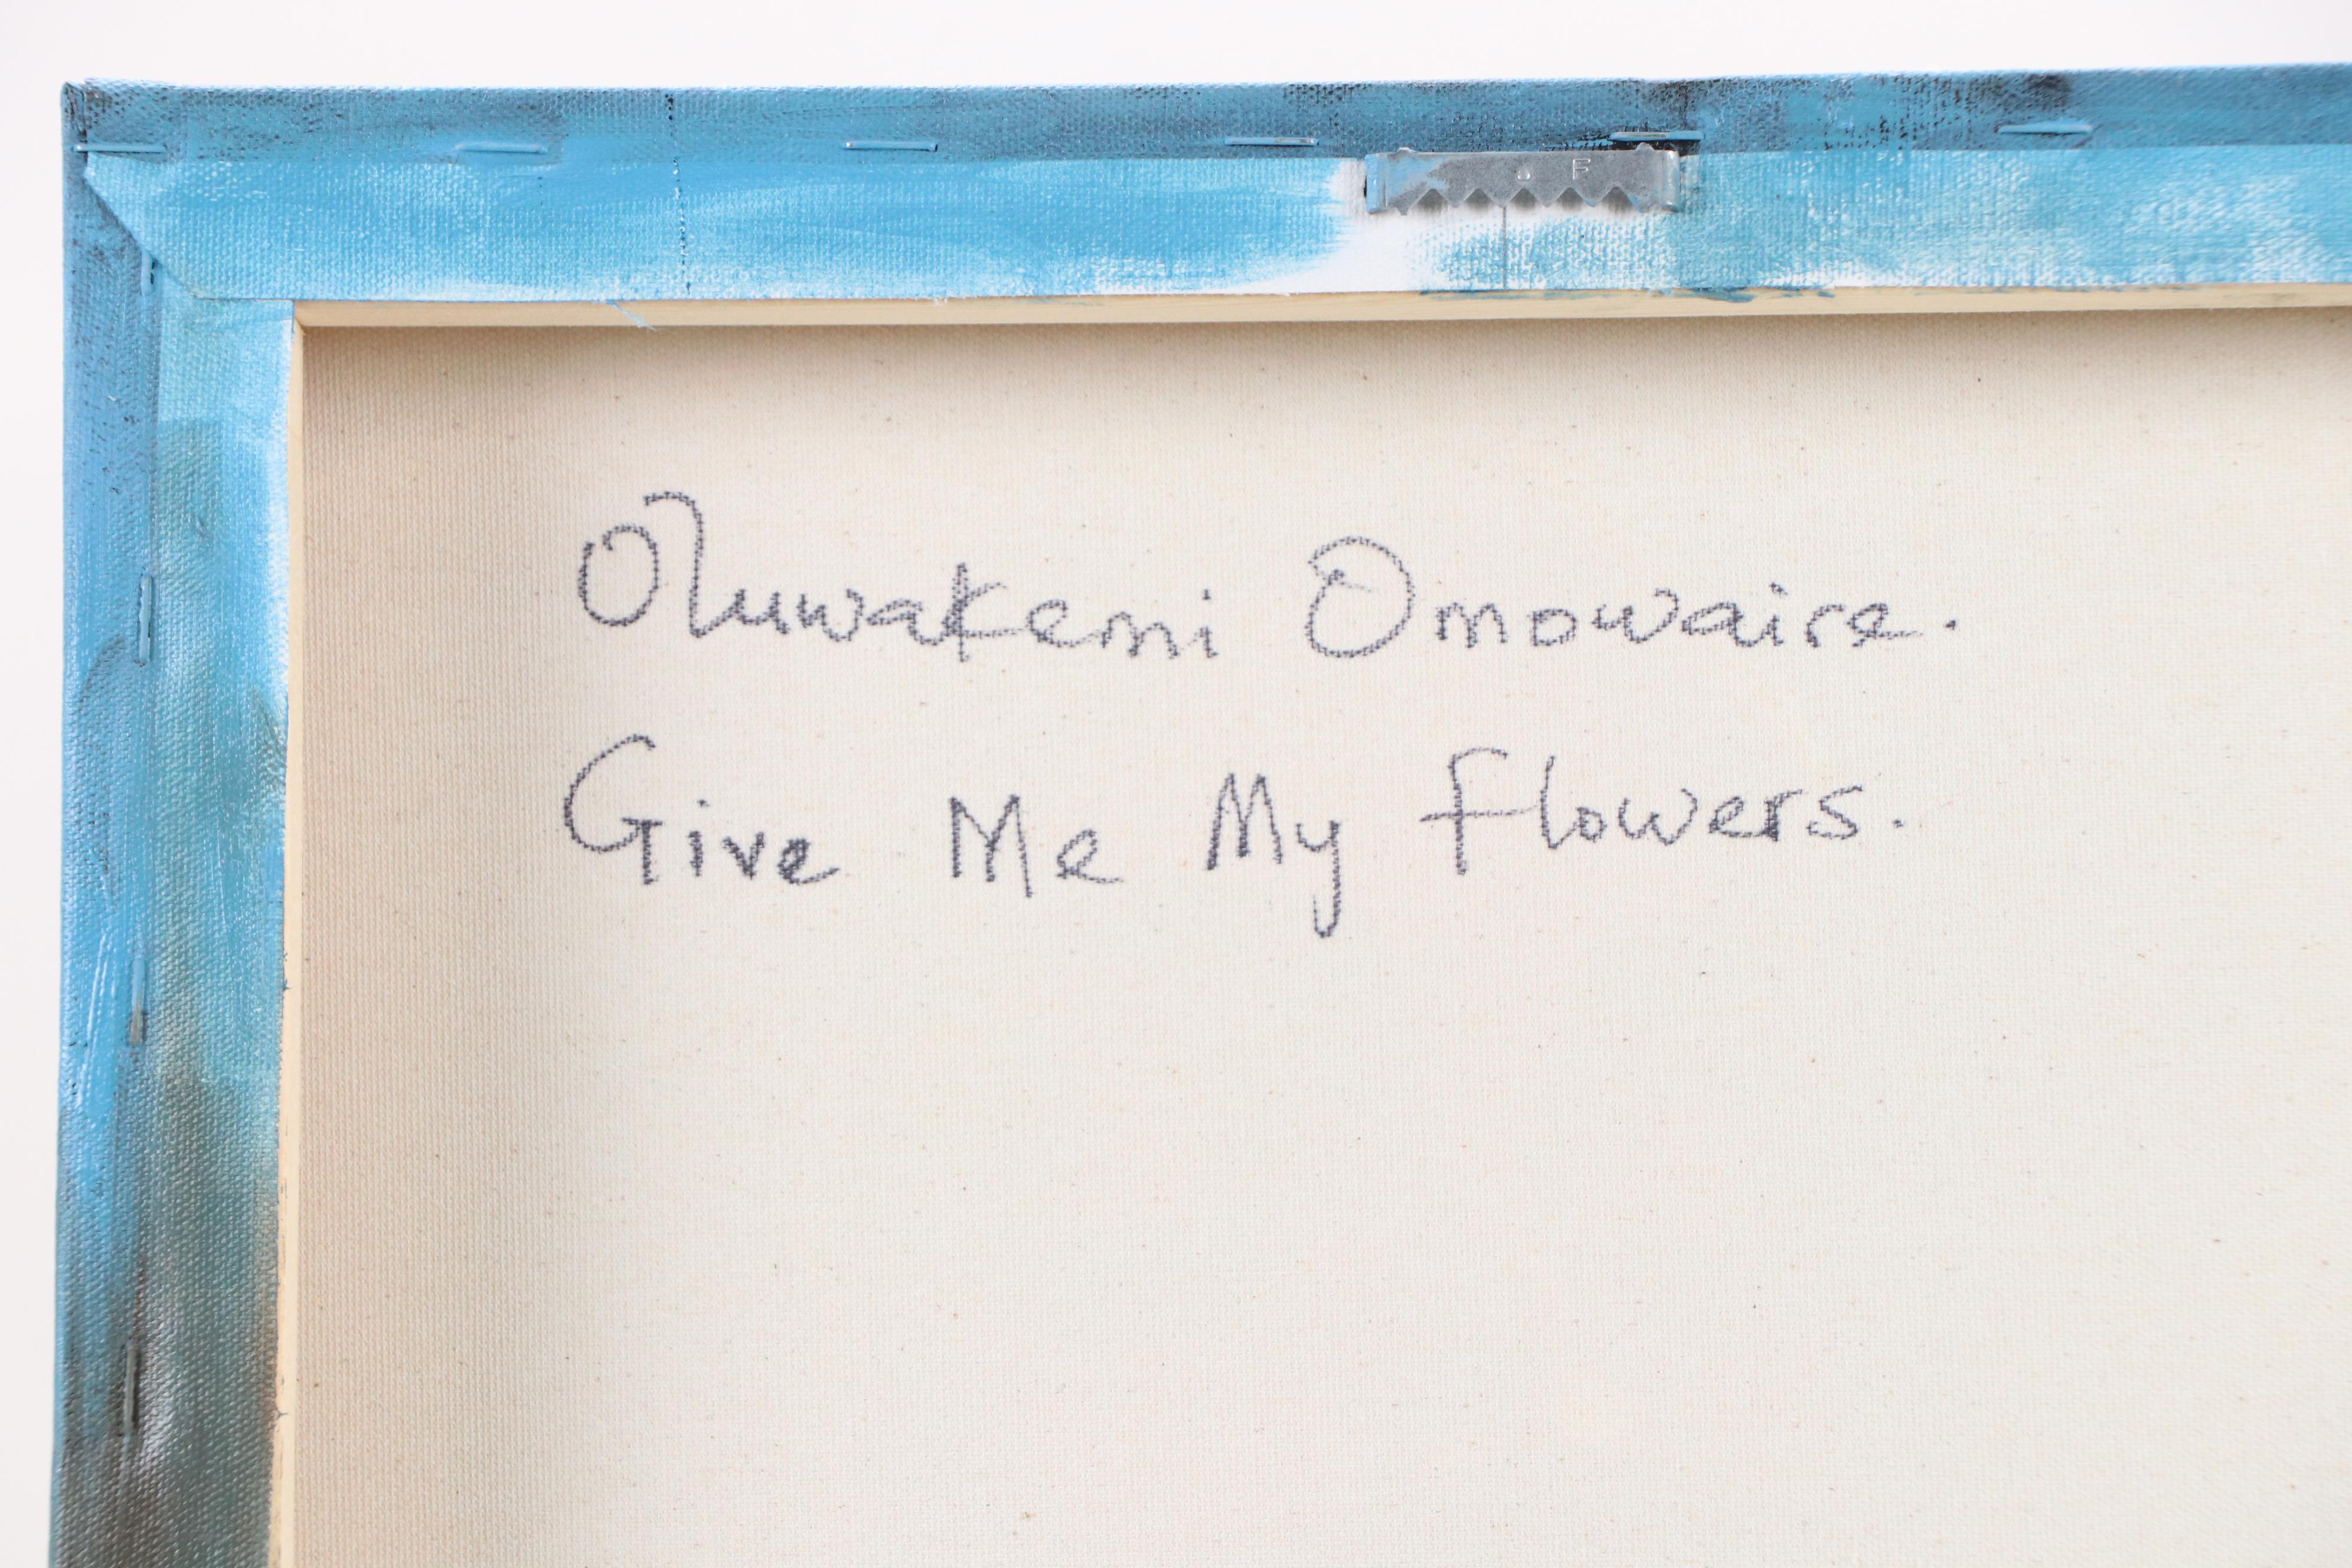 Oluwakemi Omowaire.
Give Me My flowers.